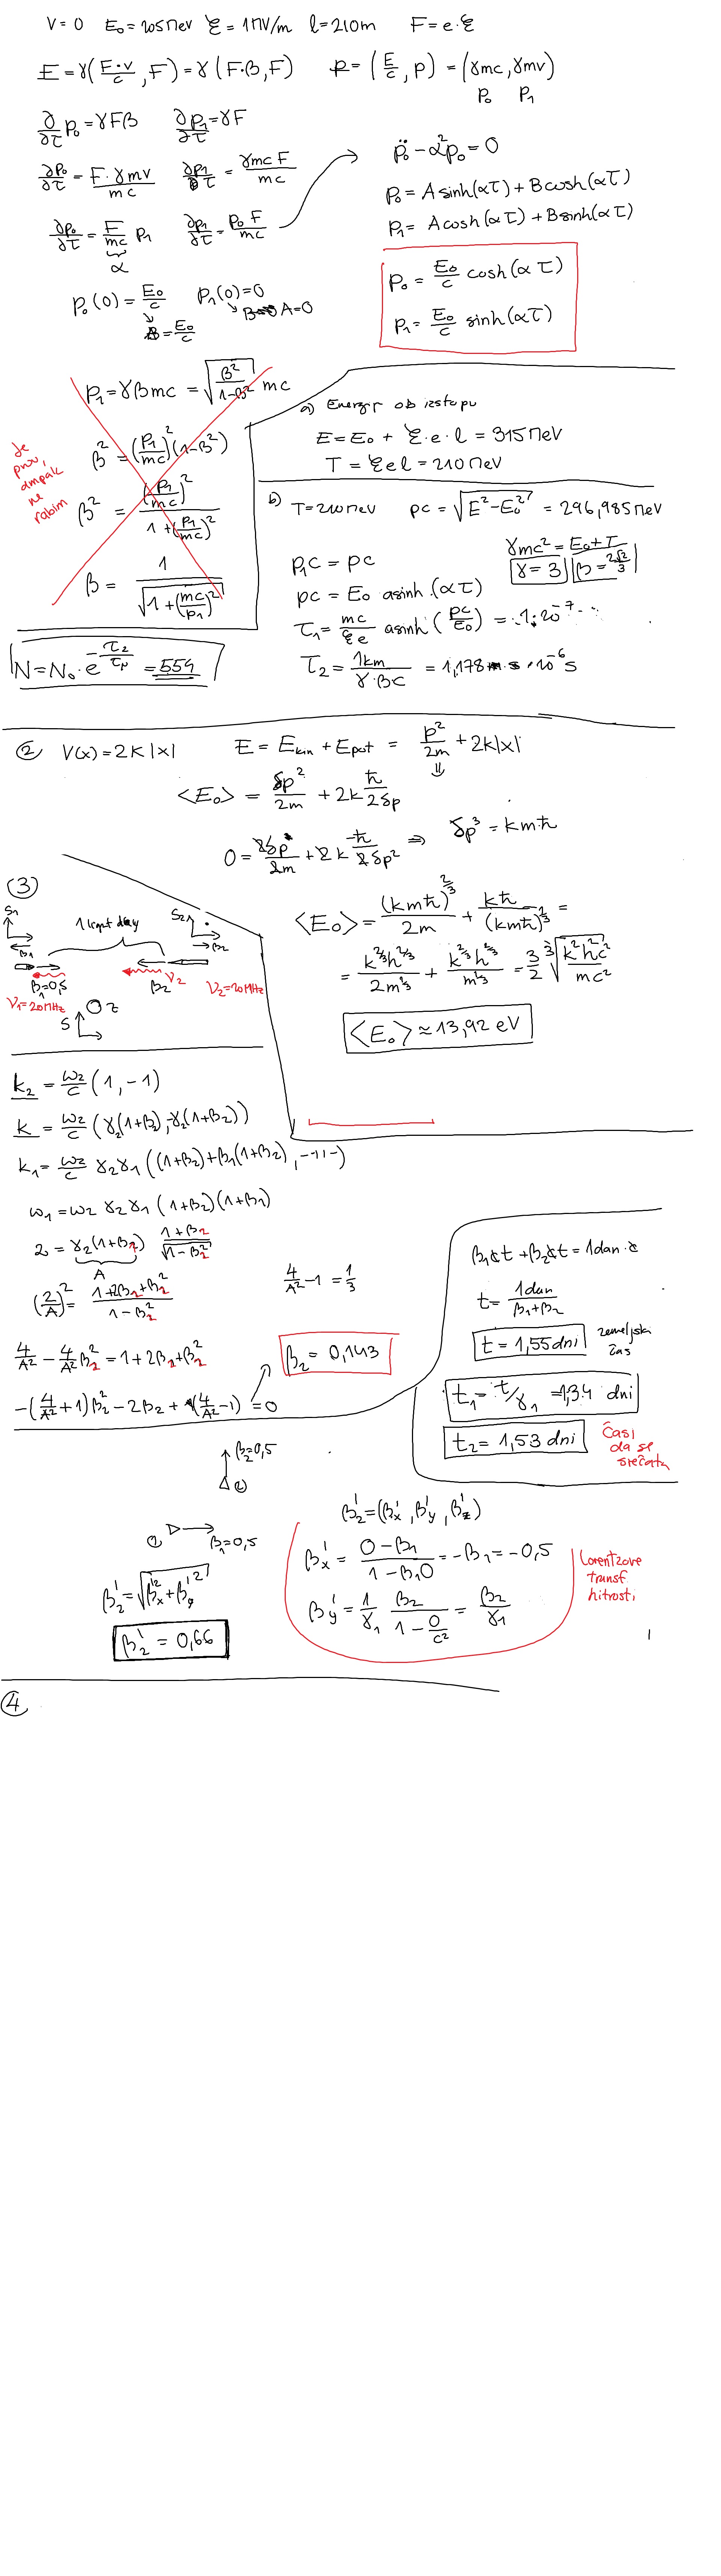 V=0 E₀=105 MeV ℰ=1MV/m l=210m F=e·ℰ
F=γ(F·v/c, F)=γ(F·β, F) p=(E/c, p)=(γmc, γmv)
p₀ p₁
∂/∂τ p₀=γFβ ∂p₁/∂τ=γF
∂p₀/∂τ=F·γmv/mc ∂p₁/∂τ=γmcF/mc
∂p₀/∂τ=F/mc p₁ ∂p₁/∂τ=p₀F/mc
α
p₀(0)=E₀/c p₁(0)=0
B=E₀/c A=0
p̈₀-α²p₀=0
p₀=A sinh(ατ)+B cosh(ατ)
p₁=A cosh(ατ)+B sinh(ατ)
p₀=E₀/c cosh(ατ)
p₁=E₀/c sinh(ατ)
p₁=γβmc=√(β²/(1-β²)) mc
β²=(p₁/mc)²(1-β²)
β²=(p₁/mc)²/(1+(p₁/mc)²)
β=1/√(1+(mc/p₁)²)
Je prav, ampak ne rabim
N=N₀·e^(-τ₂/τμ)=554
a) Energija ob izstopu
E=E₀+ℰ·e·l=315MeV
T=ℰel=210MeV
b) T=210MeV pc=√(E²-E₀²)=296,985MeV
γmc²=E₀+T
p₁c=pc γ=3 β=2√2/3
pc=E₀ asinh(ατ)
τ₁=mc/ℰe asinh(pc/E₀)=1·20⁻⁷...
τ₂=1km/γ·βc=1,178·10⁻⁶s
② V(x)=2k|x| E=Ekin+Epot=p²/2m+2k|x|
⇓
<E₀>=δp²/2m+2k ħ/2δp
0=2δp/2m+2k -ħ/2δp² ⇒ δp³=kmħ
<E₀>=(kmħ)^(2/3)/2m+kħ/(kmħ)^(1/3)=
=k^(2/3)ħ^(2/3)/2m^(1/3)+k^(2/3)ħ^(2/3)/m^(1/3)=3/2 ∛(k²ħ²c²/mc²)
<E₀>≈13,92 eV
③
S₁ 1 light day S₂
β₁ β₂
β₁=0,5 β₂ ν₂ ν₂=20MHz
ν₁=20MHz
S Z
k₂=ω₂/c(1,-1)
k=ω₂/c(γ₂(1+β₂),-γ₂(1+β₂))
k₁=ω₂/c γ₂γ₁((1+β₂)+β₁(1+β₂),-11-)
ω₁=ω₂γ₂γ₁(1+β₂)(1+β₁)
2=γ₂(1+β₁) (1+β₂)/√(1-β₂²)
A
(2/A)²=(1+2β₂+β₂²)/(1-β₂²)
4/A²-1=1/3
4/A²-4/A²β₂²=1+2β₂+β₂²
β₂=0,143
-(4/A²+1)β₂²-2β₂+(4/A²-1)=0
β₁ct+β₂ct=1dan·c
t=1dan/(β₁+β₂)
t=1,55dni zemeljski čas
t₁=t/γ₁=1,34 dni
t₂=1,53 dni Časi da se srečata
β₂=0,5
②
① β₁=0,5
β₂'=(βx',βy',βz')
βx'=(0-β₁)/(1-β₁0)=-β₁=-0,5
βy'=1/γ₁ β₂/(1-0/c²)=β₂/γ₁
Lorentzove transf hitrosti
β₂'=√(βx'²+βy'²)
β₂'=0,66
④